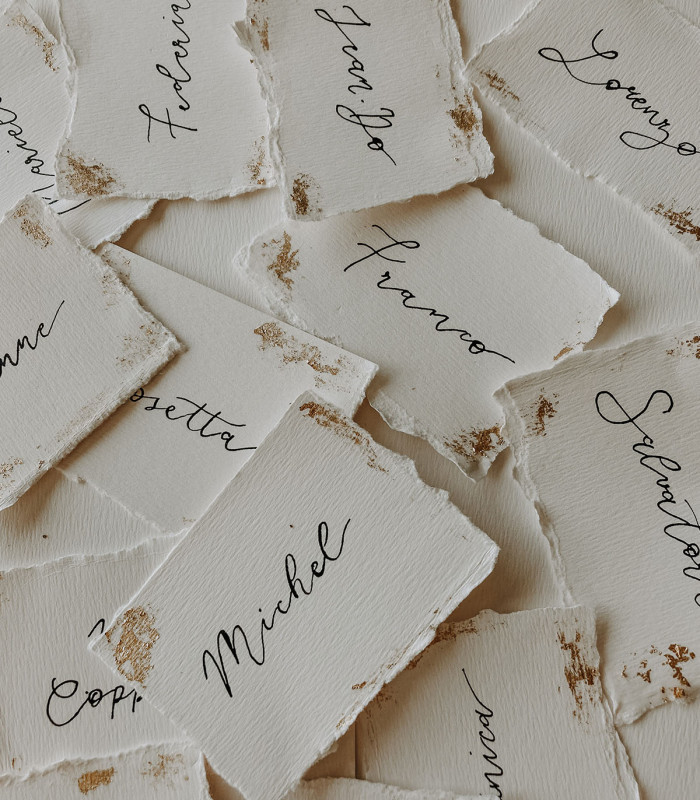 Federic
Lorenzo
Franco
osetta
Salvator
Michel
Copp
nica